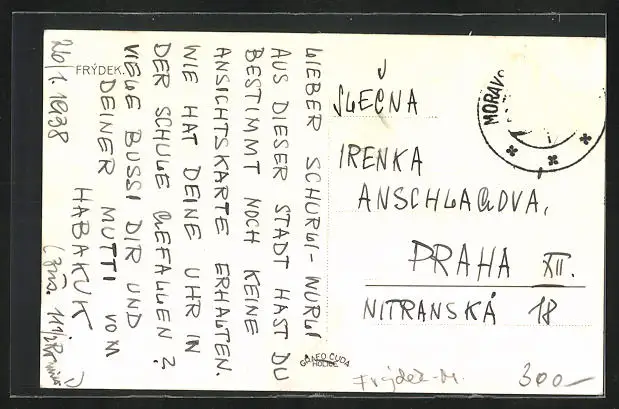 FRÝDEK.
26/1. 1938
LIEBER SCHURLI-WURLI
AUS DIESER STADT HAST DU
BESTIMMT NOCH KEINE
ANSICHTSKARTE ERHALTEN.
WIE HAT DEINE UHR IN
DER SCHULE GEFALLEN?
VIELE BUSSI DIR UND
DEINER MUTTI VOM
HABAKUK
SLEČNA
IRENKA
ANSCHLAGOVA,
PRAHA XII.
NITRANSKÁ 18
MORAV
GRAFO ČUDA
HOLICE
Frýdek-M.
300-